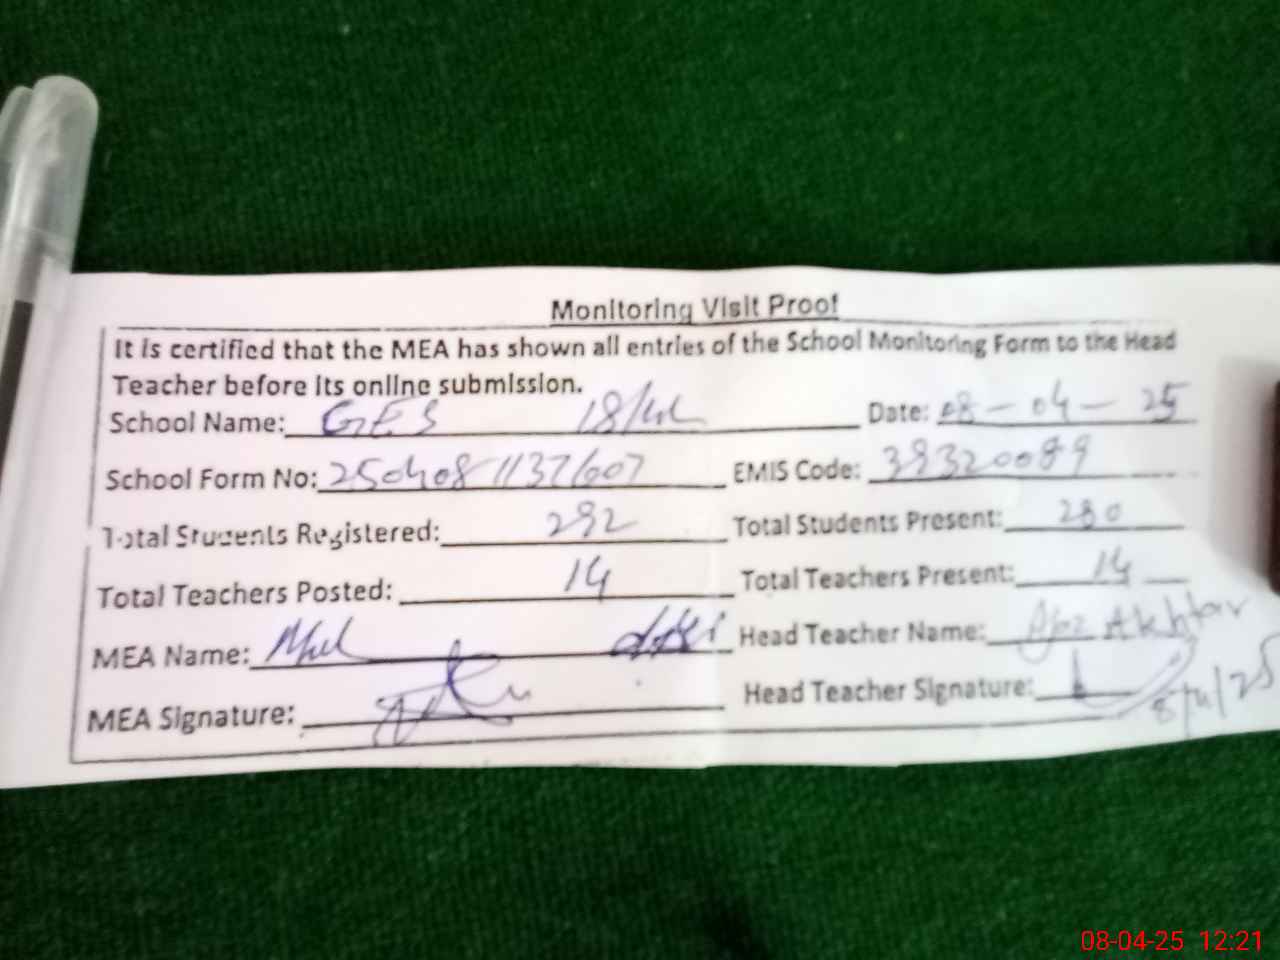 Monitoring Visit Proof
It is certified that the MEA has shown all entries of the School Monitoring Form to the Head
Teacher before its online submission.
School Name: GES 18/ Date: 08-04-25
School Form No: 250408 1137607 EMIS Code: 38320089
Total Students Registered: 292 Total Students Present: 280
Total Teachers Posted: 14 Total Teachers Present: 14
MEA Name: Head Teacher Name: Akhtar
MEA Signature: Head Teacher Signature: 8/4/25
08-04-25 12:21